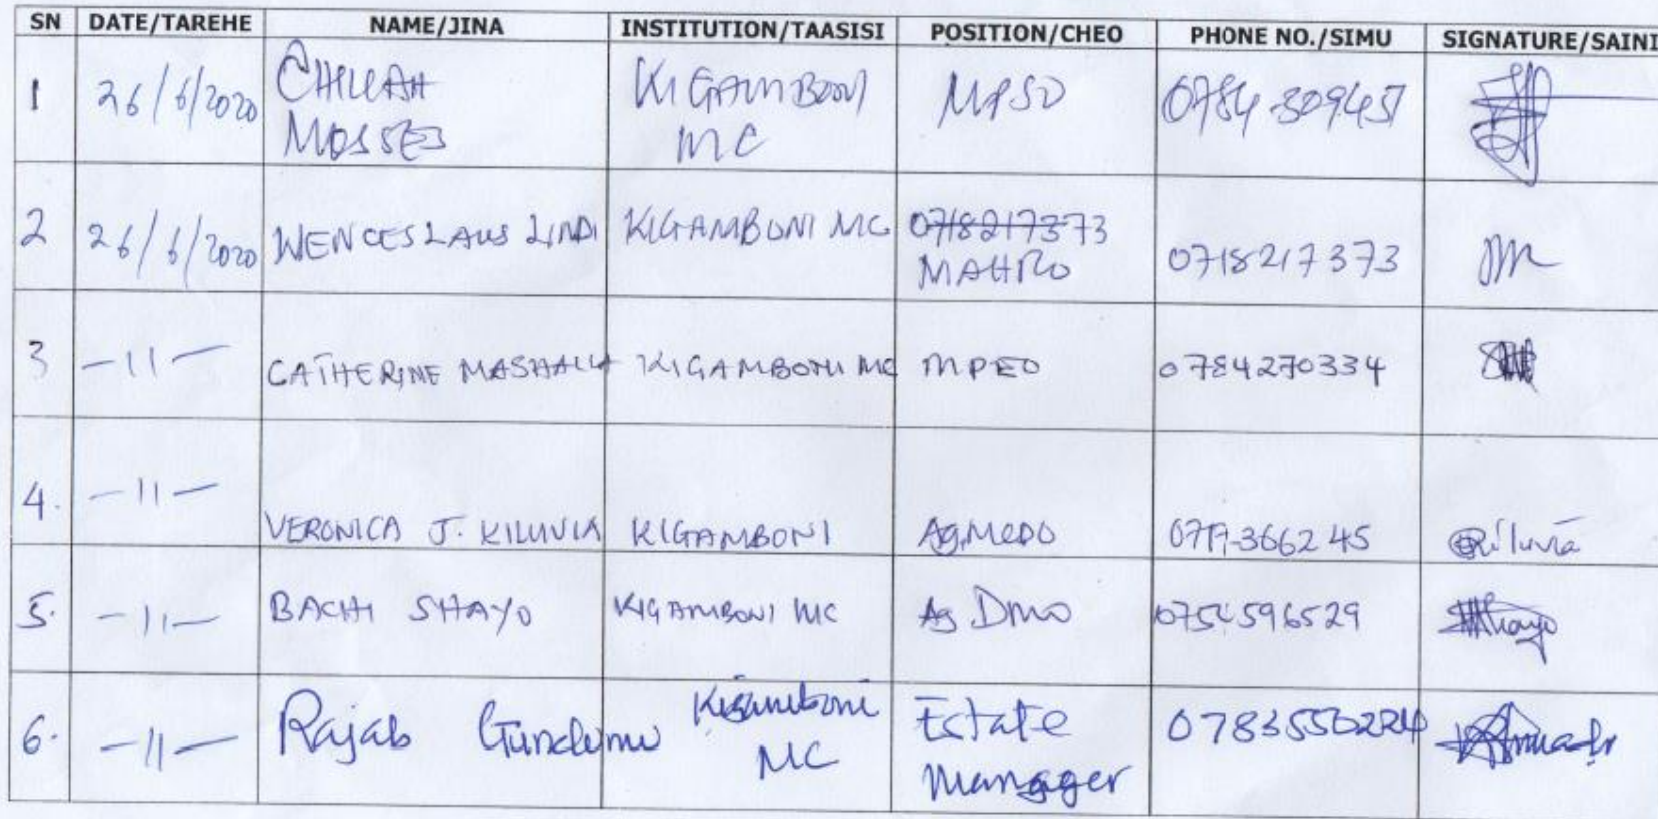 SN DATE/TAREHE NAME/JINA INSTITUTION/TAASISI POSITION/CHEO PHONE NO./SIMU SIGNATURE/SAINI
1 26/6/2020 CHILEASH KIGAMBONI MPSO 0784 309457
MOSSES MC
2 26/6/2020 WENCESLAUS LINDI KIGAMBONI MC 0718217373 0718217373
MAHRO
3 -11- CATHERINE MASHALLA KIGAMBONI MC MPEO 0784270334
4. -11- VERONICA J. KILUVIA KIGAMBONI Ag.MEDO 0717366245 Kiluvia
5. -11- BACHI SHAYO KIGAMBONI MC Ag DMO 0754596529 Shayo
6. -11- Rajab Gundumu Kigamboni Estate 0783550224
MC Manager